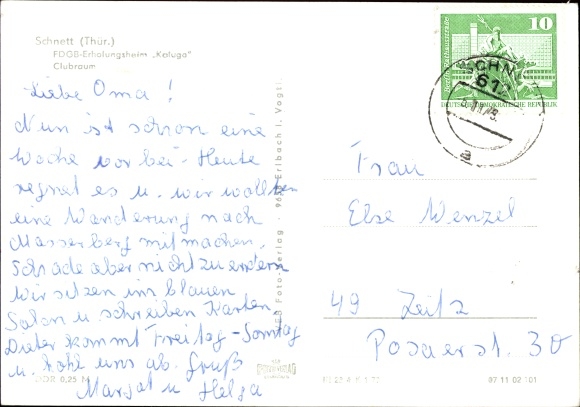 Schnett (Thür.)
FDGB-Erholungsheim „Kaluga"
Clubraum
Liebe Oma!
Nun ist schon eine
Woche vorbei. Heute
regnet es u. wir wollten
eine Wanderung nach
Masserberg mitmachen.
Schade aber nicht zu ändern
wir sitzen im blauen
Salon u. schreiben Karten.
Dieter kommt Freitag-Sonntag
u. holt uns ab. Gruß
Margot u Helga
DDR 0,25 M
Foto-Verlag · Erlbach i. Vogtl.
10
DEUTSCHE DEMOKRATISCHE REPUBLIK
SCHN
61
a
Frau
Else Wenzel
49 Zeitz
Posaerst. 30
07 11 02 101